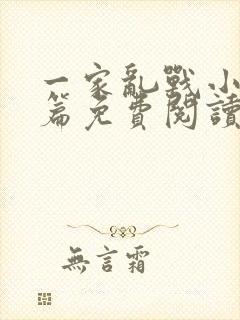 一家亂戰小
篇免費閱讀
無言霜